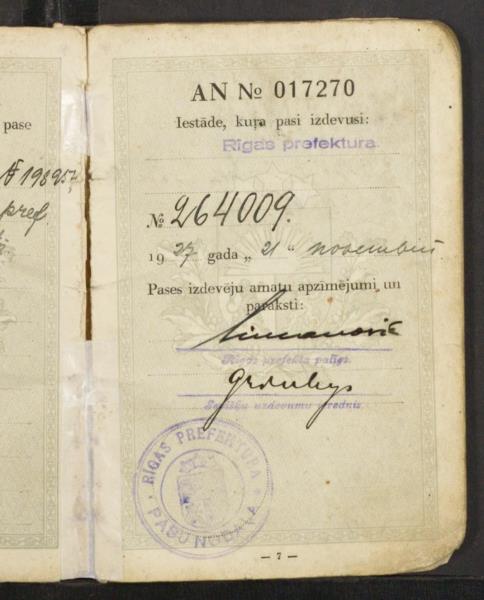 pase
№ 19895
pref.
AN № 017270
Iestāde, kuŗa pasi izdevusi:
Rīgas prefektura.
№ 264009.
1927 gada „ 21 “ novembrī
Pases izdevēju amatu apzīmējumi un
paraksti:
Rīgas prefekta palīgs.
Sevišķu uzdevumu ierēdnis.
RĪGAS PREFEKTURA
PASU NODAĻA
— 7 —